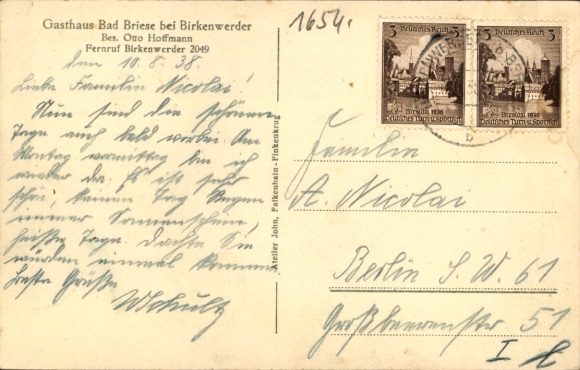 Gasthaus Bad Briese bei Birkenwerder
Bes. Otto Hoffmann
Fernruf Birkenwerder 2049
1654.
den 10. 8. 38.
Liebe Familie Nicolai!
Nun sind die schönen
Tage auch bald vorbei. Am
Montag vormittag bin ich
wieder da. Es ist sehr
schön, keinen Tag Regen
immer Sonnenschein,
heiße Tage. Dachte Sie
würden einmal kommen
Beste Grüße
WSchultz
Atelier John, Falkenhain-Finkenkrug
3 Deutsches Reich 3
Breslau 1938
Deutsches Turn- u. Sportfest
3 Deutsches Reich 3
Breslau 1938
Deutsches Turn- u. Sportfest
b
Familie
A. Nicolai
Berlin S. W. 61
Großbeerenstr 51
I